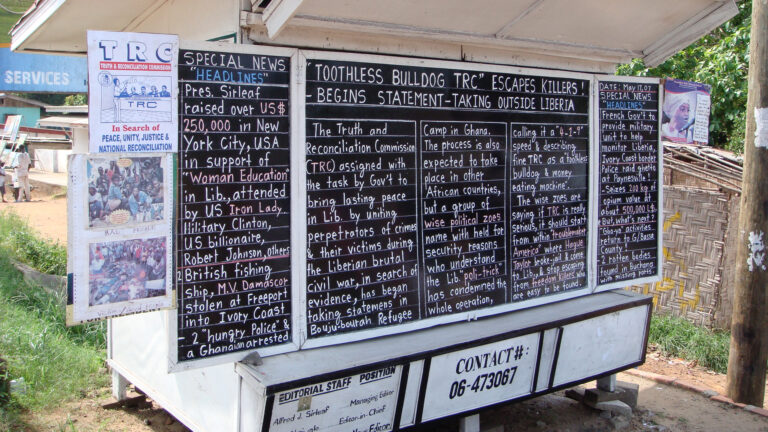 SERVICES
TRC
TRUTH & RECONCILIATION COMMISSION
TRC
In Search of
PEACE, UNITY, JUSTICE &
NATIONAL RECONCILIATION
SPECIAL NEWS
"HEADLINES"
Pres. Sirleaf
raised over US$
250,000 in New
York City, USA
in support of
"Woman Education"
in Lib., attended
by US Iron Lady
Military Clinton,
US billionaire,
Robert Johnson, others
British fishing
ship, M.V. Damascor
stolen at Freeport
into Ivory Coast
- 2 "hungry Police" &
a Ghanaian arrested
TOOTHLESS BULLDOG TRC" ESCAPES KILLERS!
- BEGINS STATEMENT-TAKING OUTSIDE LIBERIA
The Truth and
Reconciliation Commission
(TRC) assigned with
the task by Gov't to
bring lasting peace
in Lib. by uniting
perpetrators of crimes
& their victims during
the Liberian brutal
civil war, in search of
evidence, has began
taking statements in
Bouju-bourah Refugee
Camp in Ghana.
The process is also
expected to take
place in other
African countries,
but a group of
wise political zoes
name with held for
security reasons
who understand
the Lib. "poli-trick"
has condemned the
whole operation,
calling it a "4-1-9"
speed & describing
fine TRC as a toothless
bulldog & money
eating machine".
The wise zoes are
saying if TRC is really
serious, it should start
from within troublemaker
America where Hague
Taylor broke jail & come
to Lib., & stop escaping
from freedom killers who
are easy to be found
DATE: May 17,07
SPECIAL NEWS
"HEADLINES"
French Gov't to
provide military
unit to help
monitor Liberia
Ivory Coast border
Police raid ghetto
at Paynesville
- Seizes 200 kg of
opium value at
about 500,000 L$
But, what's next?
"Ghana" activities
return to G/Bassa
County
2 rotten bodies
found in Buchanan
CONTACT #:
06-473067
EDITORIAL STAFF POSITION
Alfred J. Sirleaf Managing Editor
Editor-in-Chief
News Editor